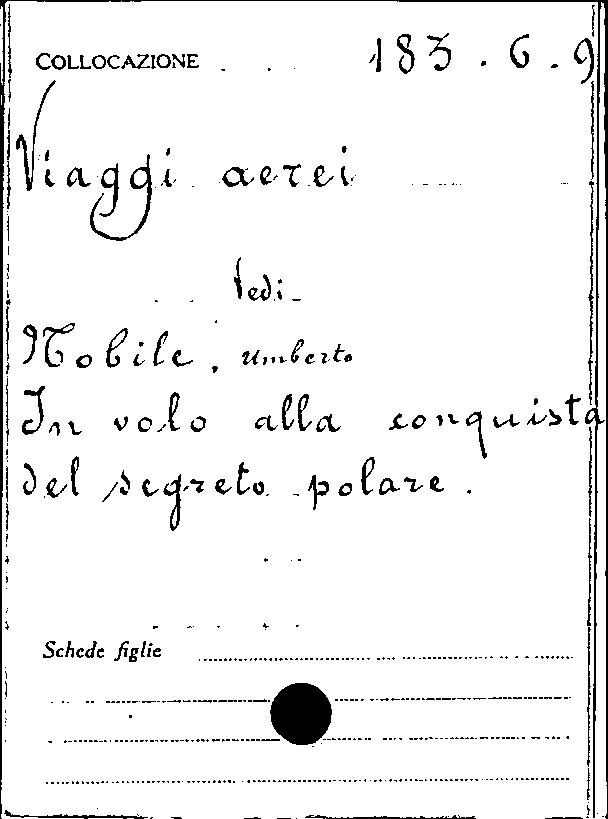 COLLOCAZIONE 183.6.9
Viaggi aerei
Vedi
Nobile, Umberto
In volo alla conquista
del segreto polare.
Schede figlie